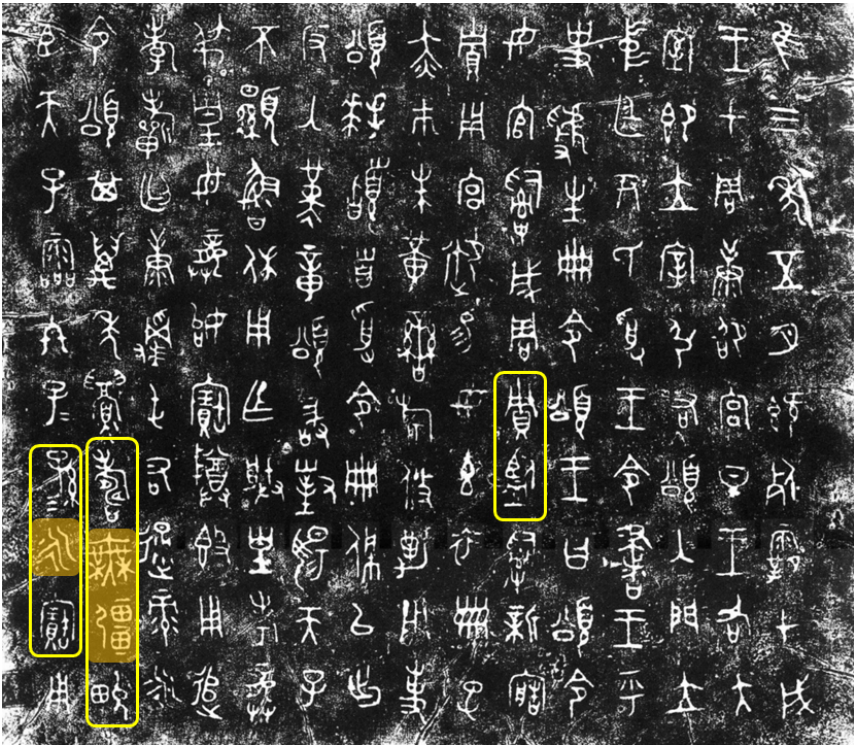 隹三年五月既死霸甲戌
王才周康卲宮旦王各大
室即立宰引右頌入門立
中廷尹氏受王令書王乎
史虢生冊令頌王曰頌令
女官𤔲成周賈監𤔲新寤
賈用宮御易女玄衣黹屯
赤巿朱黃䜌旂攸勒用事
頌拜䭫首受令冊佩以出
反入堇章頌敢對揚天子
不顯魯休用乍朕皇考龏
弔皇母龏姒寶尊簋用追
孝𣄨匄康𩁹屯右通彔永
令頌其萬年眉壽無疆畯
臣天子霝冬子子孫孫永寶用